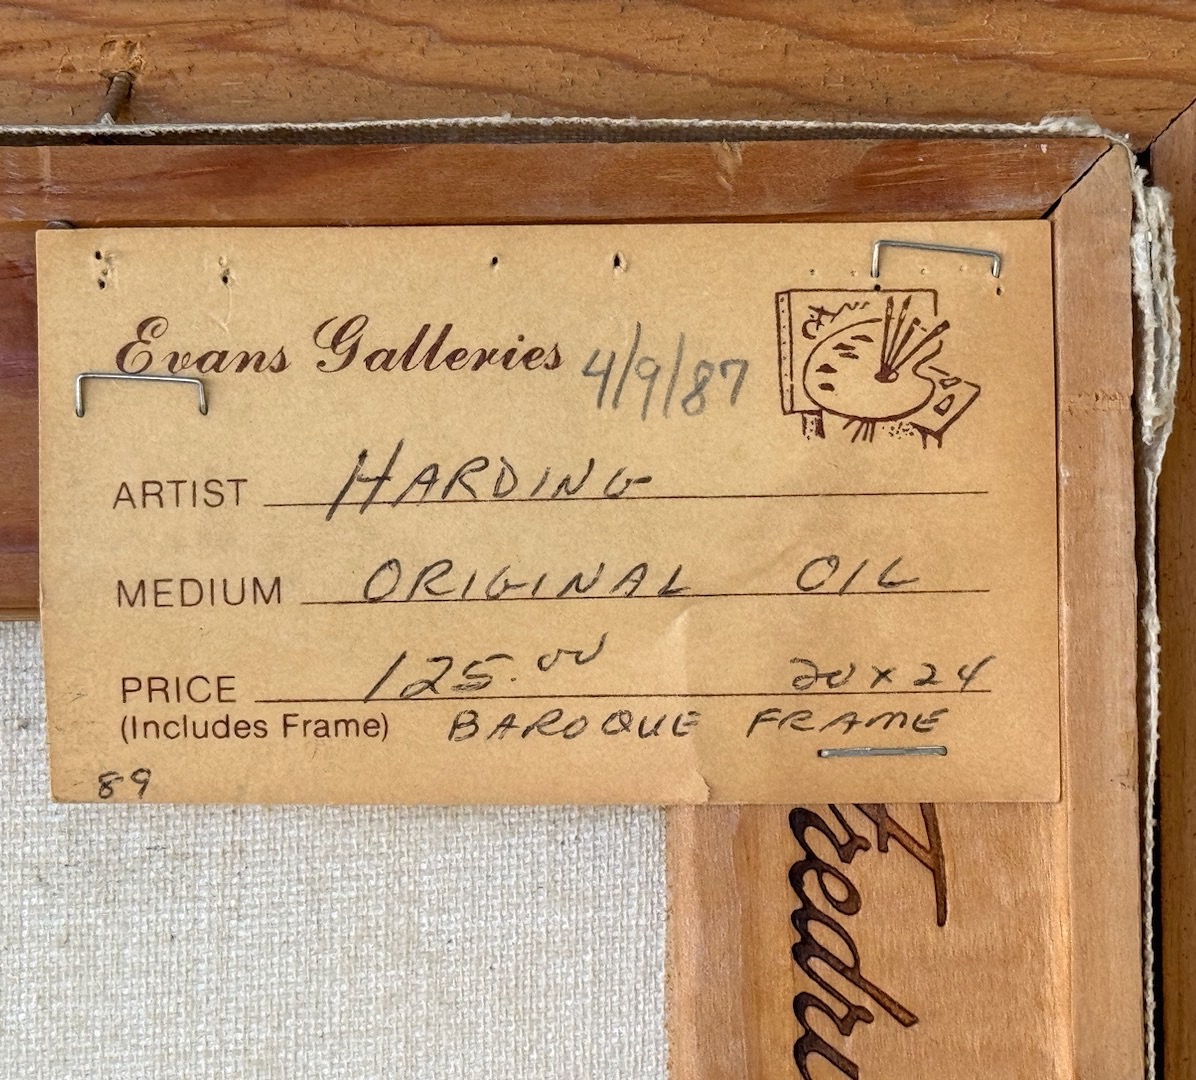 Evans Galleries 4/9/87
ARTIST HARDING
MEDIUM ORIGINAL OIL
PRICE 125.00 20 x 24
(Includes Frame) BAROQUE FRAME
89
Fredri